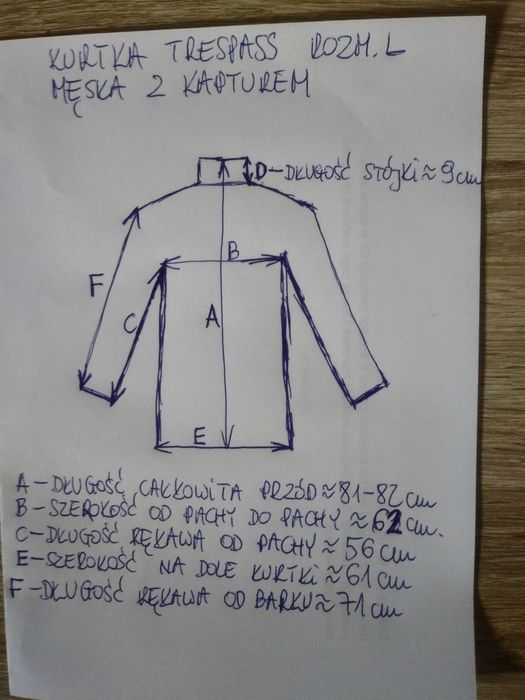 KURTKA TRESPASS ROZM. L
MĘSKA Z KAPTUREM
D-DŁUGOŚĆ STÓJKI ≈ 9 cm
B
F
C
A
E
A - DŁUGOŚĆ CAŁKOWITA PRZÓD ≈ 81-82 cm
B - SZEROKOŚĆ OD PACHY DO PACHY ≈ 62 cm.
C - DŁUGOŚĆ RĘKAWA OD PACHY ≈ 56 cm
E - SZEROKOŚĆ NA DOLE KURTKI ≈ 61 cm
F - DŁUGOŚĆ RĘKAWA OD BARKU ≈ 71 cm